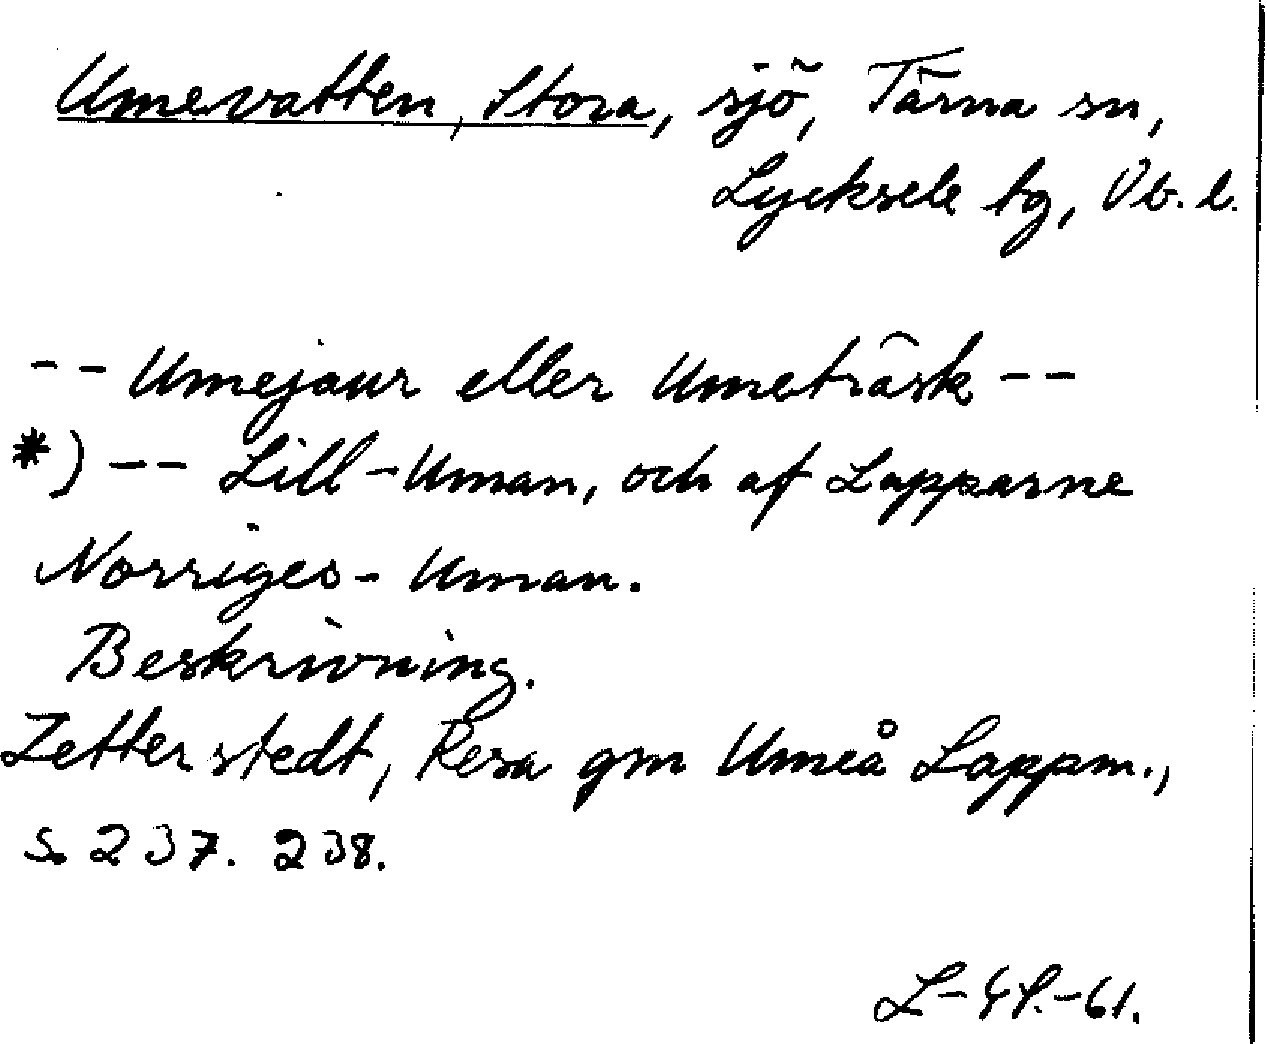 Umevatten, Stora, sjö, Tärna sn,
Lycksele tg, Vb. l.
-- Umejaur eller Umeträsk --
*) -- Lill-Uman, och af Lapparne
Norriges-Uman.
Beskrivning.
Zetterstedt, Resa gm Umeå Lappm.,
s. 237. 238.